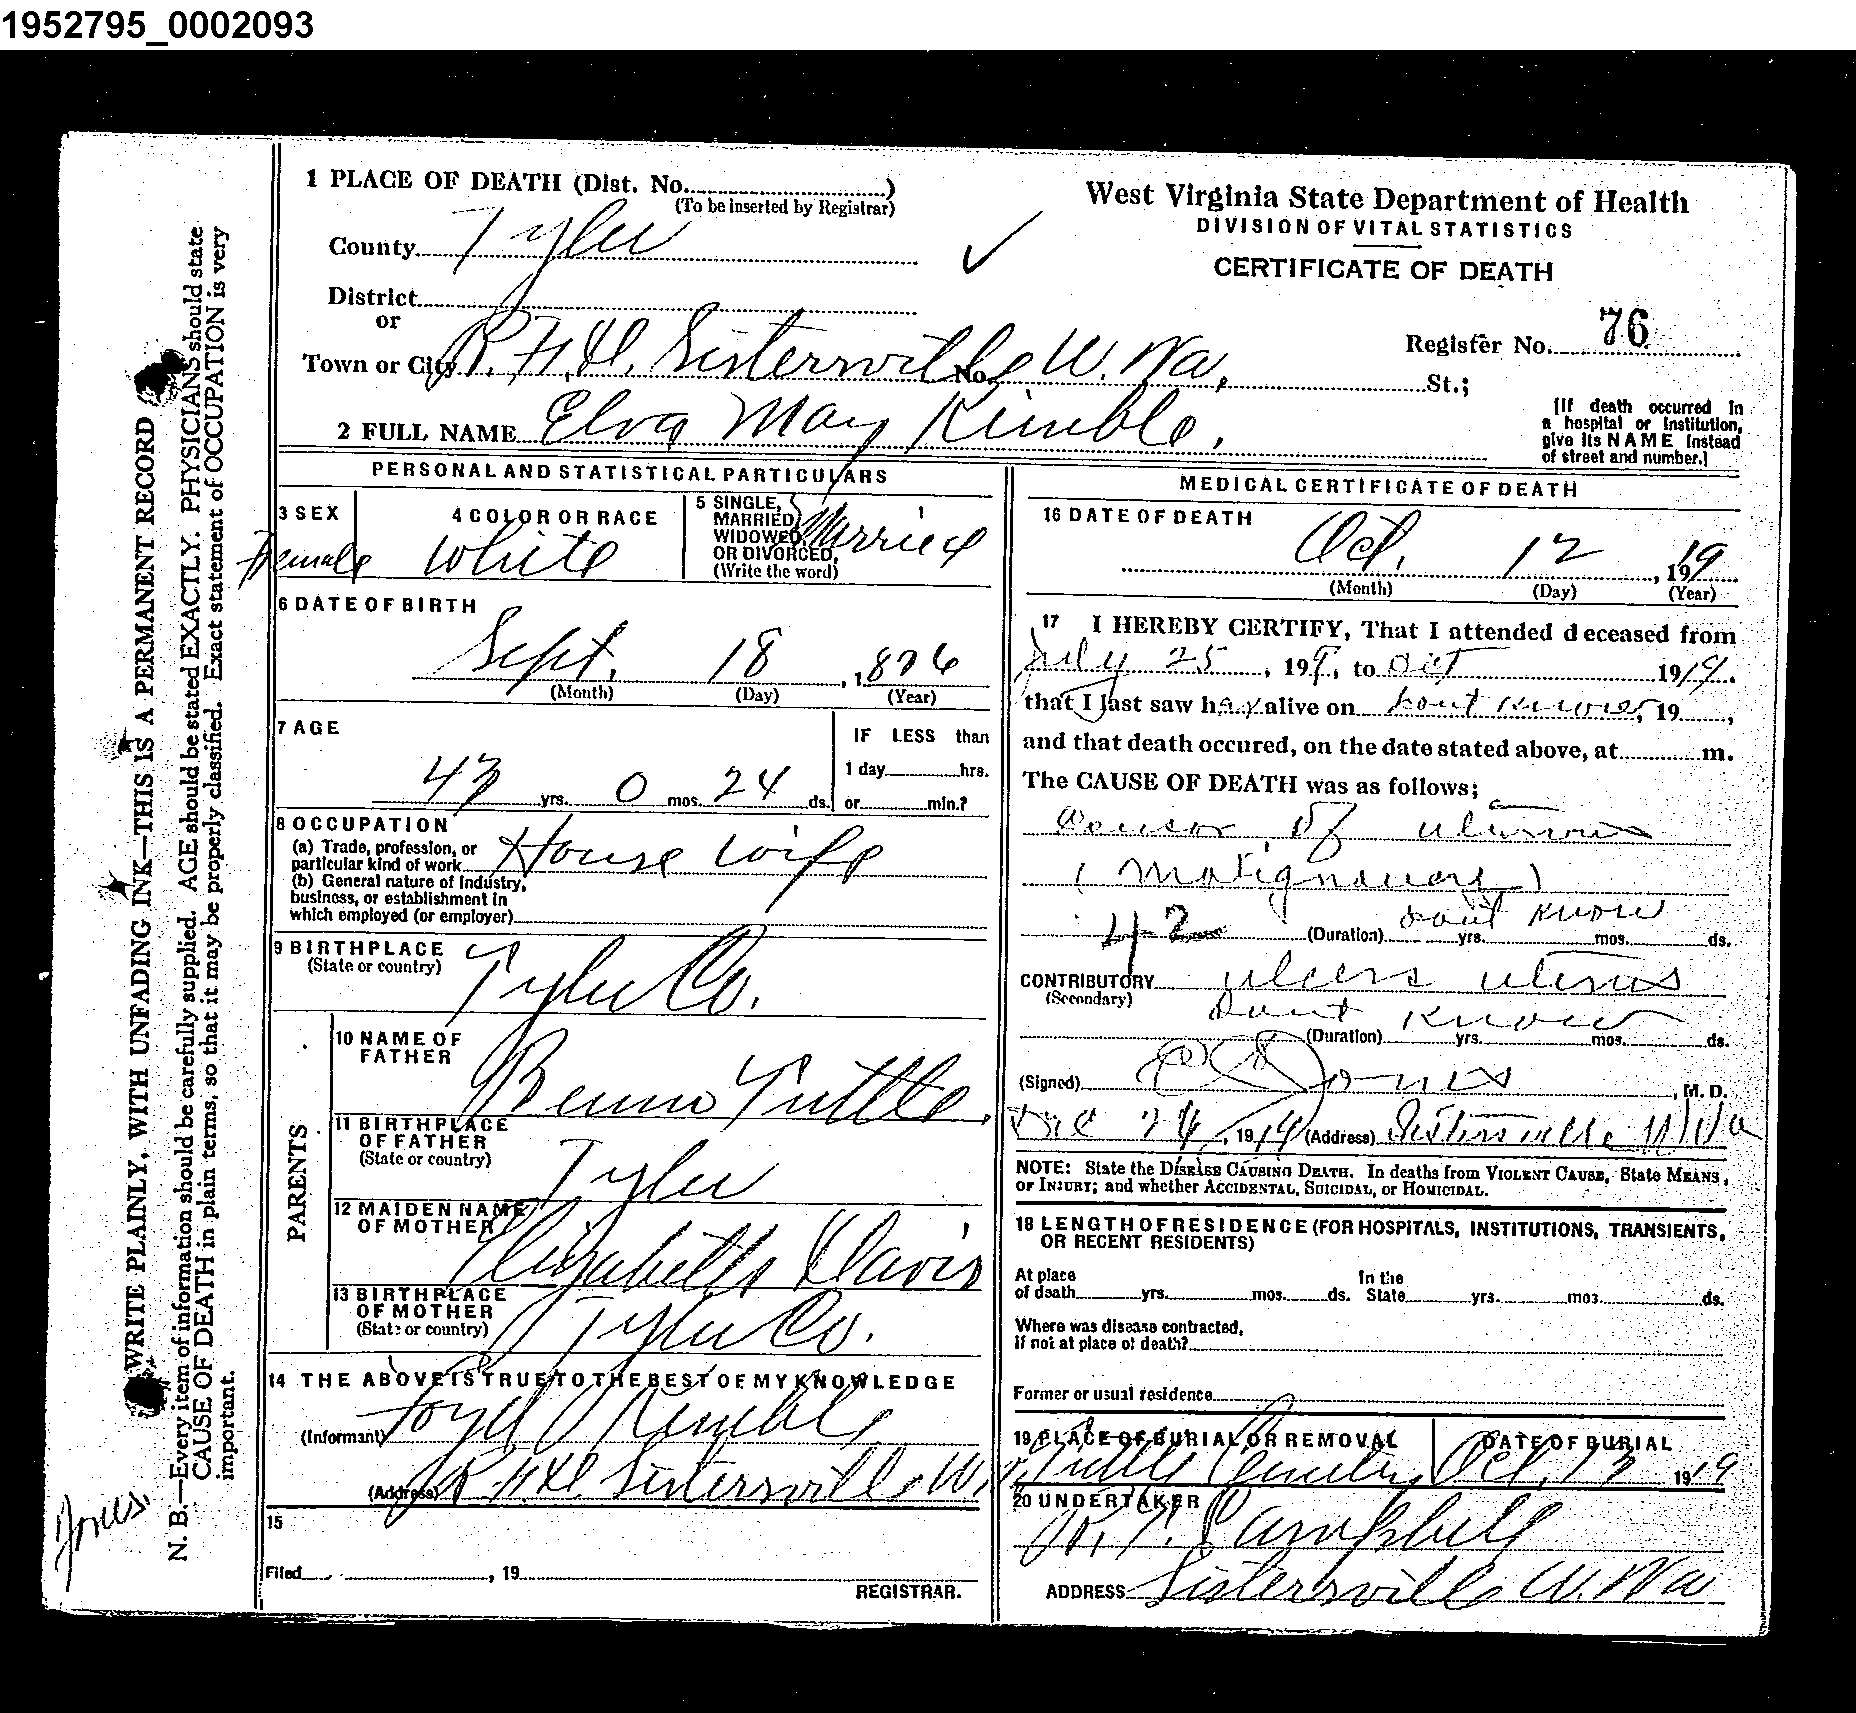 1952795_0002093
1 PLACE OF DEATH (Dist. No. )
(To be inserted by Registrar)
County Tyler
District
or
Town or City R.F.D. Sistersville W. Va.
No. St.;
2 FULL NAME Elva May Kimble.
West Virginia State Department of Health
DIVISION OF VITAL STATISTICS
CERTIFICATE OF DEATH
Register No. 76
[If death occurred in
a hospital or institution,
give its NAME instead
of street and number.]
PERSONAL AND STATISTICAL PARTICULARS
3 SEX
Female
4 COLOR OR RACE
White
5 SINGLE,
MARRIED,
WIDOWED,
OR DIVORCED,
(Write the word)
Married
6 DATE OF BIRTH
Sept. 18, 1876
(Month) (Day) (Year)
7 AGE
43 yrs. 0 mos. 24 ds.
IF LESS than
1 day hrs.
or min.?
8 OCCUPATION
(a) Trade, profession, or
particular kind of work House wife
(b) General nature of Industry,
business, or establishment in
which employed (or employer)
9 BIRTHPLACE
(State or country)
Tyler Co.
PARENTS
10 NAME OF
FATHER
Tuttle.
11 BIRTHPLACE
OF FATHER
(State or country)
Tyler
12 MAIDEN NAME
OF MOTHER
Elizabeth Davis
13 BIRTHPLACE
OF MOTHER
(State or country)
Tyler Co.
14 THE ABOVE IS TRUE TO THE BEST OF MY KNOWLEDGE
(Informant) Kimble
(Address) R.F.D. Sistersville W.
15
Filed , 19
REGISTRAR.
MEDICAL CERTIFICATE OF DEATH
16 DATE OF DEATH
Oct. 12, 1919
(Month) (Day) (Year)
17 I HEREBY CERTIFY, That I attended deceased from
July 25, 1919, to Oct 1919.
that I last saw her alive on dont know, 19 ,
and that death occured, on the date stated above, at m.
The CAUSE OF DEATH was as follows;
of
42 (Duration) dont know yrs. mos. ds.
CONTRIBUTORY ulcers uterus
(Secondary)
(Duration) Dont know yrs. mos. ds.
(Signed) Jones, M. D.
1919 (Address) Sistersville W Va
NOTE: State the DISEASE CAUSING DEATH. In deaths from VIOLENT CAUSE, State MEANS,
OF INJURY; and whether ACCIDENTAL, SUICIDAL, or HOMICIDAL.
18 LENGTH OF RESIDENCE (FOR HOSPITALS, INSTITUTIONS, TRANSIENTS,
OR RECENT RESIDENTS)
At place
of death yrs. mos. ds.
In the
State yrs. mos. ds.
Where was disease contracted,
If not at place of death?
Former or usual residence
19 PLACE OF BURIAL OR REMOVAL
Tuttle Cemetery
DATE OF BURIAL
Oct. 13 1919
20 UNDERTAKER
Campbell
ADDRESS Sistersville W. Va
WRITE PLAINLY, WITH UNFADING INK—THIS IS A PERMANENT RECORD
N. B.—Every item of information should be carefully supplied. AGE should be stated EXACTLY. PHYSICIANS should state
CAUSE OF DEATH in plain terms, so that it may be properly classified. Exact statement of OCCUPATION is very
important.
Jones.